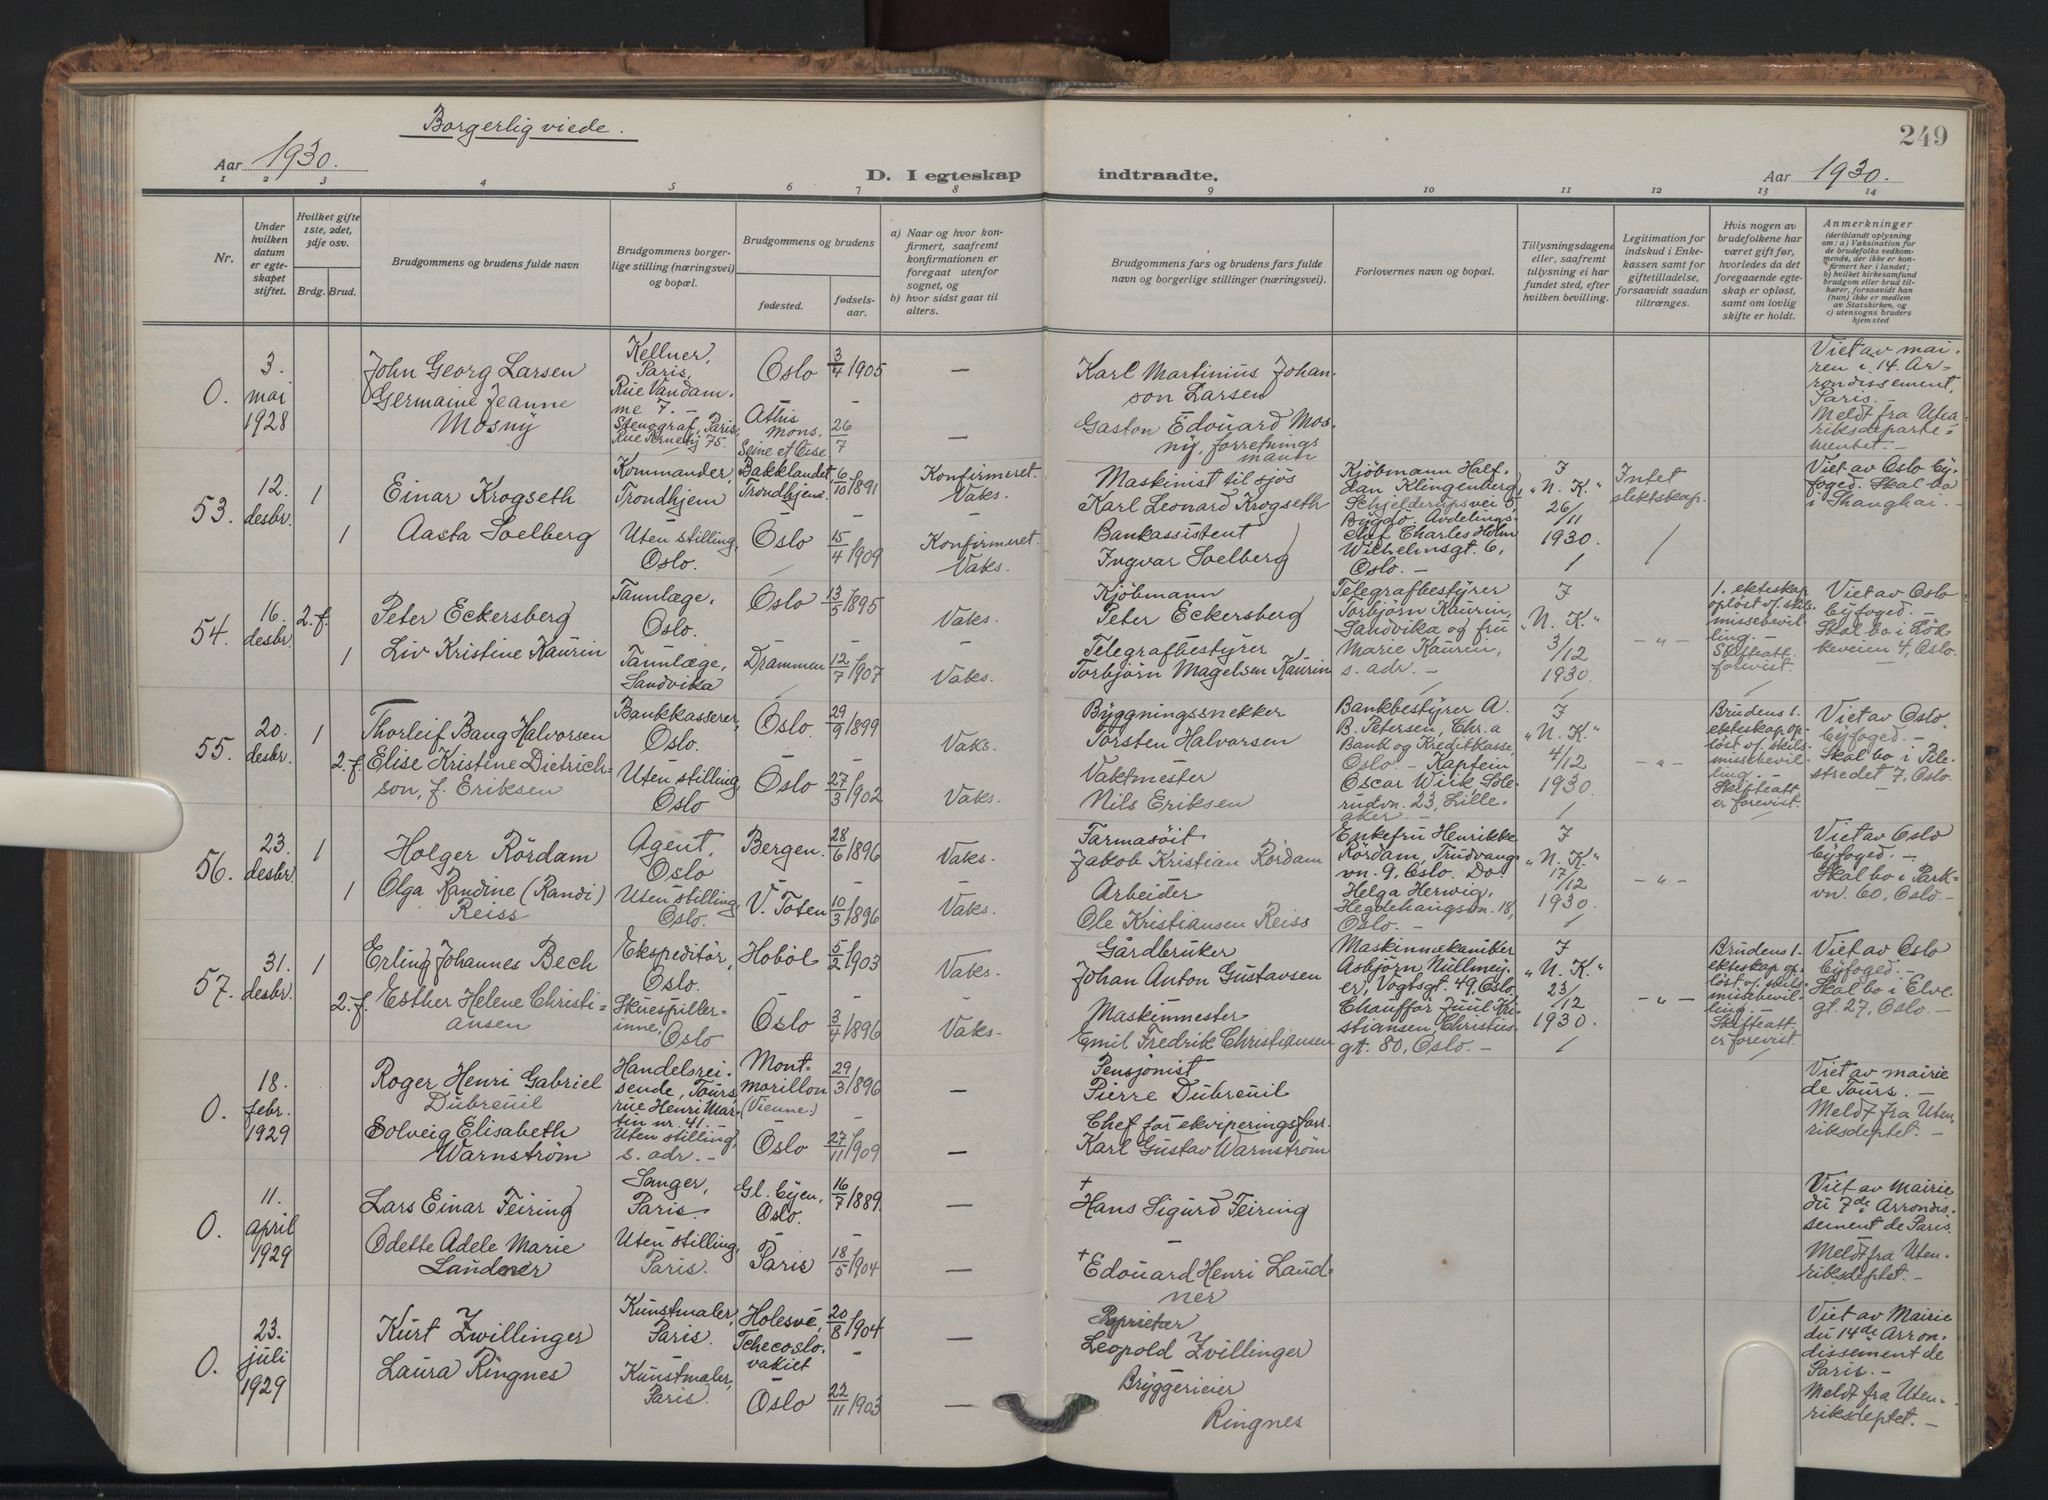 Borgerlig viede.
249
Aar 1930.
D. I egteskap indtraadte.
Aar 1930.
1 2 3 4 5 6 7 8 9 10 11 12 13 14
Nr.
Under hvilken datum er egteskapet stiftet.
Hvilket gifte 1ste, 2det, 3dje osv.
Brdg. Brud.
Brudgommens og brudens fulde navn
Brudgommens borgerlige stilling (næringsvei) og bopæl.
Brudgommens og brudens
fødested.
fødselsaar.
a) Naar og hvor konfirmert, saafremt konfirmationen er foregaat utenfor sognet, og
b) hvor sidst gaat til alters.
Brudgommens fars og brudens fars fulde navn og borgerlige stillinger (næringsvei).
Forlovernes navn og bopæl.
Tillysningsdagene eller, saafremt tillysning ei har fundet sted, efter hvilken bevilling.
Legitimation for indskud i Enkekassen samt for giftetilladelse, forsaavidt saadan tiltrænges.
Hvis nogen av brudefolkene har været gift før, hvorledes da det foregaaende egteskap er opløst, samt om lovlig skifte er holdt.
Anmerkninger
(deriblandt oplysning om: a) Vaksination for de brudefolks vedkommende, der ikke er konfirmert her i landet; b) hvilket kirkesamfund brudgom eller brud tilhører, forsaavidt han (hun) ikke er medlem av Statskirken, og c) utensogns bruders hjemsted
0.
3. mai 1928
John Georg Larsen
Kellner, Paris, Rue Vandamme 7. -
Oslo
3/4 1905
—
Karl Martinius Johanson Larsen
Viet av mairen i 14. Arrondissement, Paris. -
Meldt fra Utenriksdepartementet. -
Germaine Jeanne Mosny
Stenograf, Paris, Rue Pernety 75.
Athis Mons, Seine et Oise
26/7
—
Gaston Edouard Mosny, forretningsmann
53.
12. desbr.
1
Einar Krogseth
Kommander, Trondhjem
Bakklandet, Trondhjem
6/10 1891
Konfirmeret. Vaks.
Maskinist til sjøs
Karl Leonard Krogseth
Kjöbmann Halfdan Klingenberg, Schjelderupsvei 5, Bygdö. Avdelingschef Charles Holm Wilhelmsgt. 6, Oslo. -
F „N. K.“ 26/11 1930.
Intet slektskap.
Viet av Oslo byfoged. Skal bo i Shanghai. -
1
Aasta Soelberg
Uten stilling, Oslo.
Oslo
15/4 1909
Konfirmeret. Vaks.
Bankassistent
Ingvar Soelberg
54.
16. desbr.
2. f.
Peter Eckersberg
Tannlæge, Oslo.
Oslo
13/5 1895
Vaks.
Kjöbmann
Peter Eckersberg
Telegrafbestyrer Torbjørn Kaurin, Sandvika og fru Marie Kaurin, s. adr. -
F „N. K.“ 3/12 1930.
- „ -
1. ekteskap oplöst v. skilsmissebevilling. - Skifteatt. forevist.
Viet av Oslo byfoged. -
Skal bo i Lökkeveien 4, Oslo.
1
Liv Kristine Kaurin
Tannlæge, Sandvika
Drammen
12/7 1907
Vaks.
Telegrafbestyrer
Torbjörn Magelsen Kaurin
55.
20. desbr.
1
Thorleif Bang Halvorsen
Bankkasserer, Oslo.
Oslo.
29/9 1899
Vaks.
Byggningssnekker
Torsten Halvorsen
Bankbestyrer A. B. Petersen, Chr.a Bank og Kreditkasse, Oslo. - Kaptein Oscar Wiik, Sollerudvn. 23, Lilleaker -
F „N. K.“ 4/12 1930.
- „ -
Brudens 1. ekteskap oplöst v. skilsmissebevilling. - Skifteatt. er forevist.
Viet av Oslo. byfoged. -
Skal bo i Pilestredet 7, Oslo.
2. f.
Elise Kristine Dietrichson, f. Eriksen
Uten stilling, Oslo
Oslo
27/3 1902
Vaks.
Vaktmester
Nils Eriksen
56.
23. desbr.
1
Holger Rördam
Agent, Oslo
Bergen.
28/6 1896
Vaks.
Farmasöit
Jakob Kristian Rördam
Enkefru Henrikke Rördam, Trudvangvn. 9, Oslo. Do. Helga Herwig, Hegdehaugsvn. 18, Oslo. -
F „N. K.“ 17/12 1930.
- „ -
Viet av Oslo byfoged. -
Skal bo i Parkvn. 60, Oslo. -
1
Olga Randine (Randi) Reiss
Uten stilling, Oslo.
V. Toten
10/3 1896
Vaks.
Arbeider
Ole Kristiansen Reiss
57.
31. desbr.
1
Erling Johannes Bech
Ekspeditör, Oslo.
Hoböl
5/2 1903
Vaks.
Gårdbruker
Johan Anton Gustavsen
Maskinmekaniker Asbjörn Nullmeyer, Vogtsgt. 49, Oslo. Chaufför Juul Kristiansen, Christiesgt. 80, Oslo. -
F „N. K.“ 23/12 1930.
- „ -
Brudens 1. ekteskap oplöst v. skilsmissebevilling. - Skifteatt. er forevist.
Viet av Oslo byfoged. -
Skal bo i Elvegt. 27, Oslo. -
2. f.
Esther Helene Christiansen
Skuespillerinne, Oslo
Oslo
3/7 1896
Vaks.
Maskinmester
Emil Fredrik Christiansen
0.
18. febr. 1929
Roger Henri Gabriel Dubreuil
Handelsreisende, Tours, rue Henri Martin nr. 41. -
Montmorillon (Vienne.)
29/3 1896
—
Pensjonist
Pierre Dubreuil
Viet av mairie de Tours. -
Meldt fra Utenriksdeptet. -
Solveig Elisabeth Warnström
Uten stilling, s. adr. -
Oslo
27/11 1909
—
Chef for ekviperingsforr.
Karl Gustav Warnström
0.
11. april 1929
Lars Einar Feiring
Sanger, Paris.
Gl. byen, Oslo.
16/7 1889
—
+ Hans Sigurd Feiring
Viet av Mairie du 7de Arrondissement de Paris
Meldt fra Utenriksdeptet. -
Odette Adele Marie Laudner
Uten stilling, Paris.
Paris
18/5 1904
—
+ Edouard Henri Laudner
0.
23. juli 1929
Kurt Zwillinger
Kunstmaler, Paris.
Holesve, Tchecoslovakiet
20/8 1904
—
Proprietær
Leopold Zwillinger
Viet av Mairie du 14de Arrondissement de Paris. -
Meldt fra Utenriksdeptet. -
Laura Ringnes
Kunstmaler, Paris.
Oslo
22/11 1903
—
Bryggerieier
Ringnes